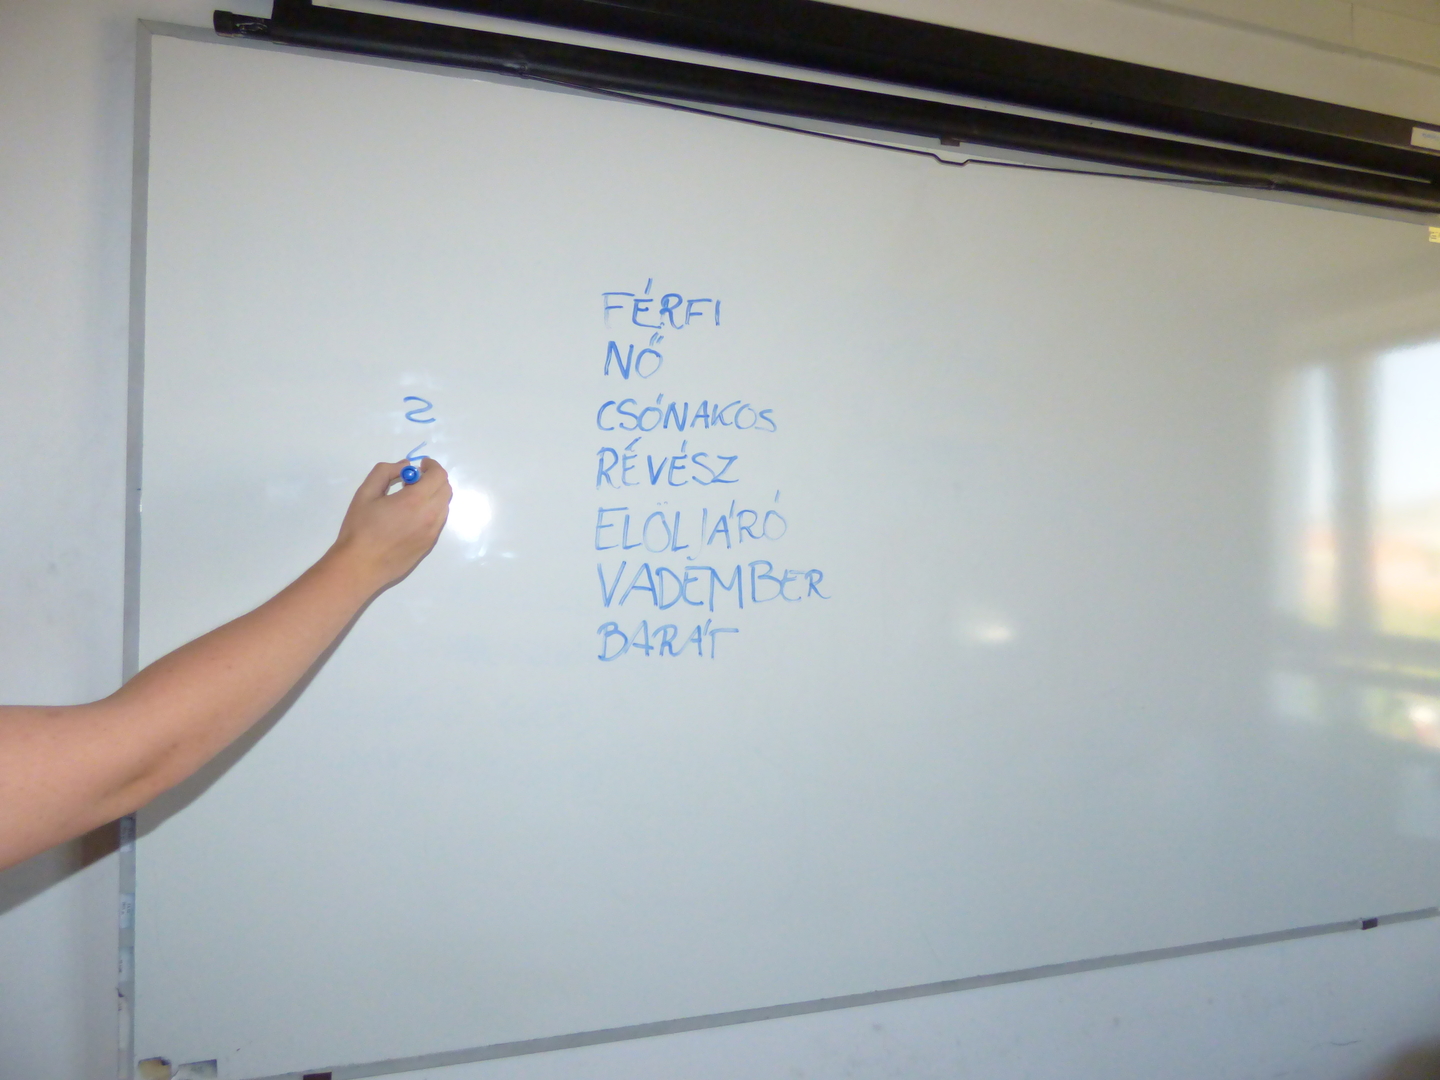 FÉRFI
NŐ
2 CSÓNAKOS
RÉVÉSZ
ELÖLJÁRÓ
VADEMBER
BARÁT